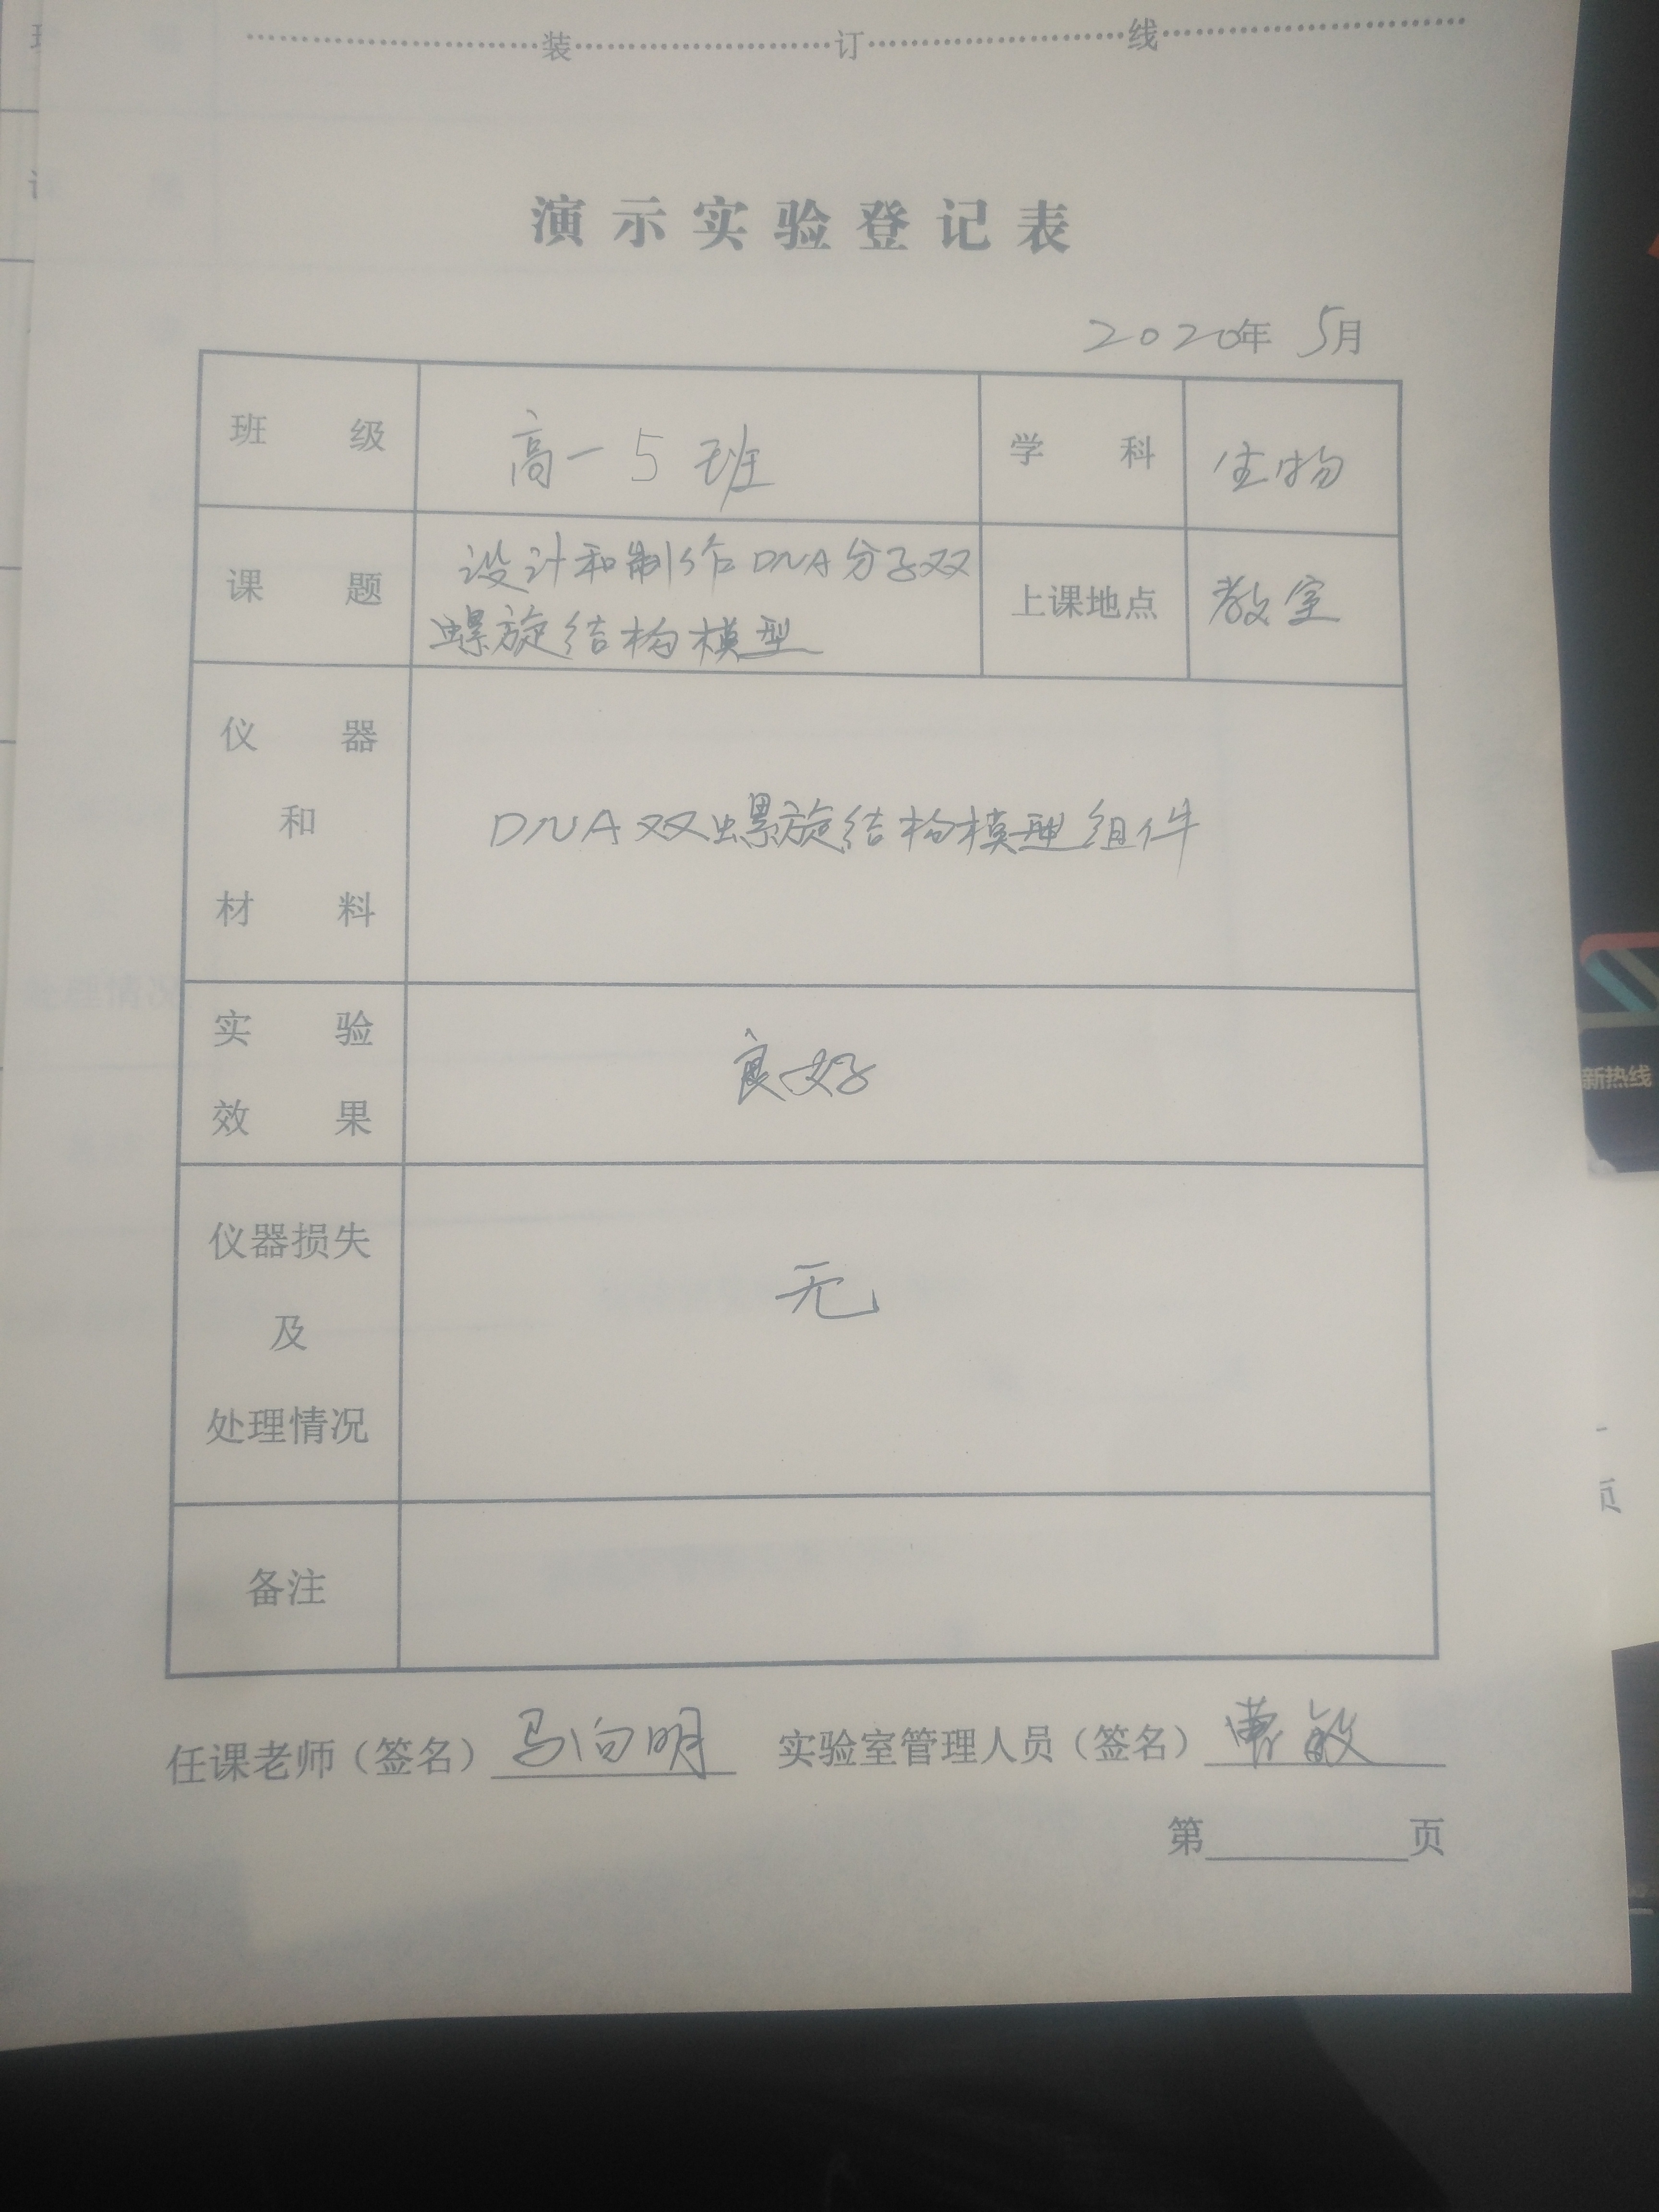 装 订 线
演示实验登记表
2020年 5月
班 级 高一5班 学 科 生物
课 题 设计和制作DNA分子双
螺旋结构模型 上课地点 教室
仪 器
和 DNA双螺旋结构模型组件
材 料
实 验
良好
效 果
仪器损失
无
及
处理情况
备注
任课老师（签名）马向明 实验室管理人员（签名）曹敏
第 页
新热线
页